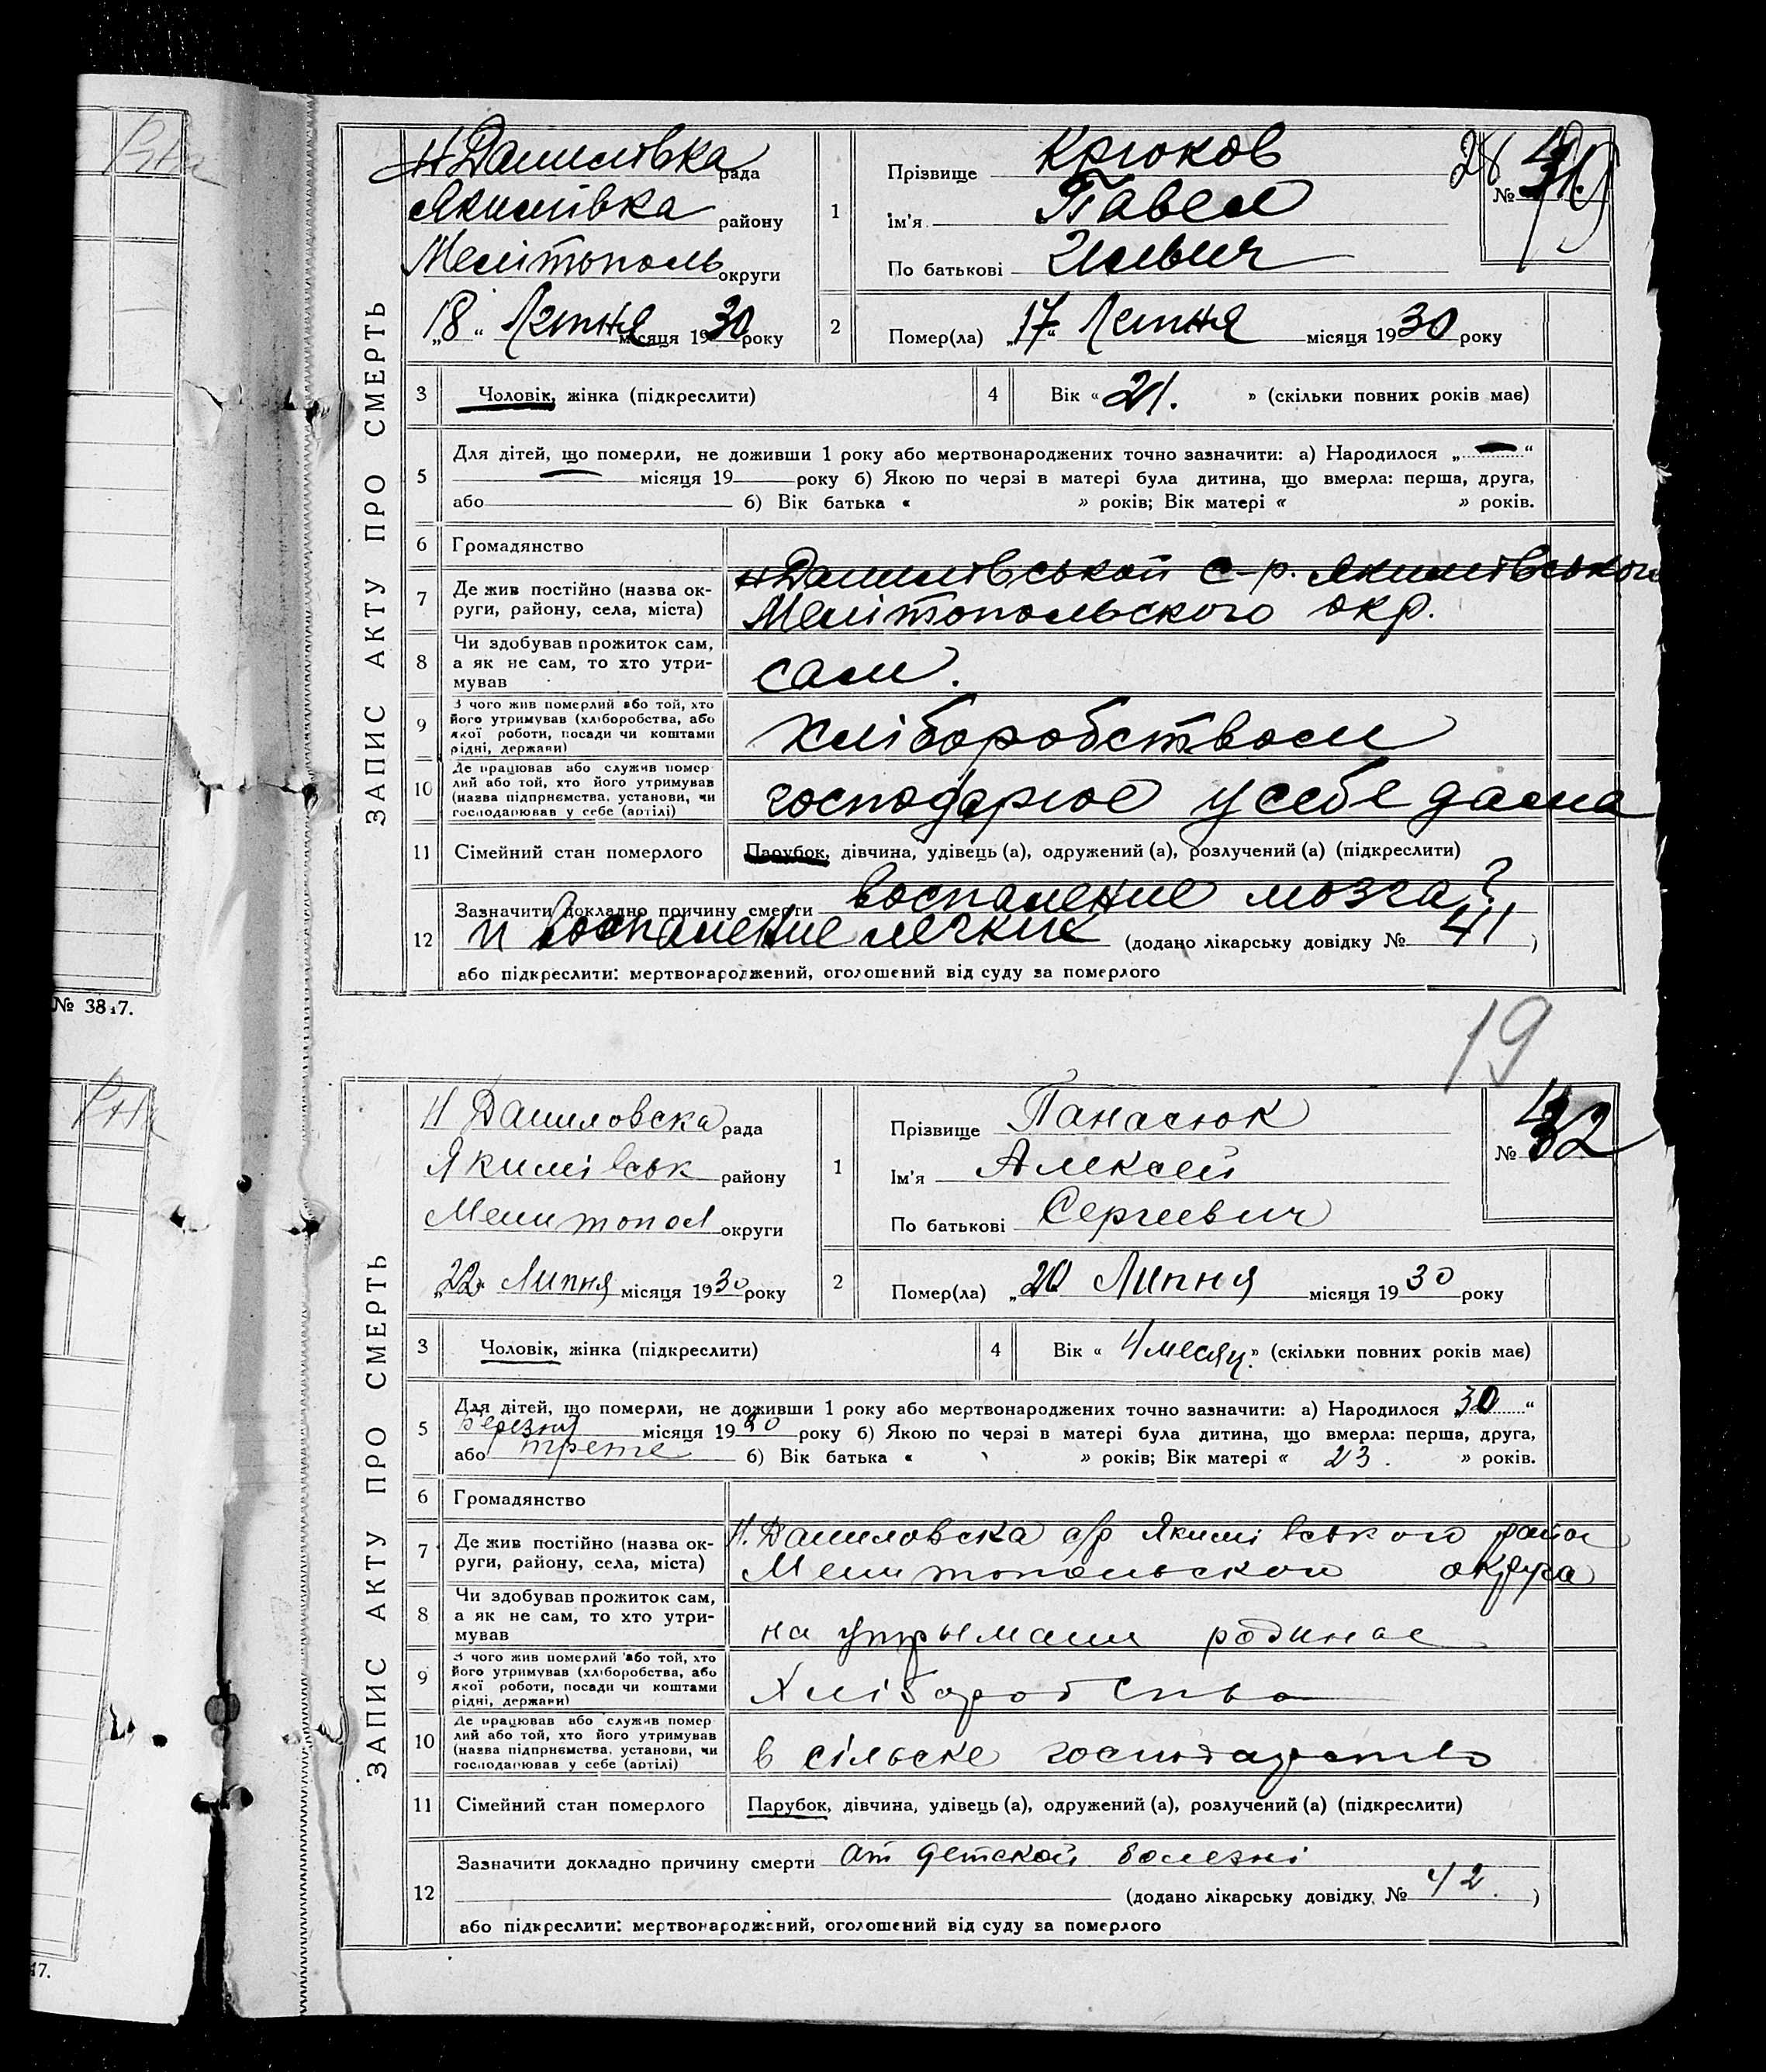 ЗАПИС АКТУ ПРО СМЕРТЬ
Н Данилівка рада
Якимівка району
Мелітополь округи
„18“ Лепня місяця 1930 року
1
Прізвище Крюков
Ім'я Павел
По батькові Ильич
28
№
2
Помер(ла) „17“ Лепня місяця 1930 року
3 Чоловік, жінка (підкреслити)
4 Вік « 21. » (скільки повних років має)
5
Для дітей, що померли, не доживши 1 року або мертвонароджених точно зазначити: а) Народилося „ — “
— місяця 19 року б) Якою по черзі в матері була дитина, що вмерла: перша, друга,
або б) Вік батька « » років; Вік матері « » років.
6 Громадянство
7 Де жив постійно (назва ок-
руги, району, села, міста)
Н Данилівськой с-р. Якимівського
Мелітопольского окр.
8 Чи здобував прожиток сам,
а як не сам, то хто утри-
мував
сам.
9 З чого жив померлий або той, хто
його утримував (хліборобства, або
якої роботи, посади чи коштами
рідні, держави)
хліборобством
10 Де працював або служив помер
лий або той, хто його утримував
(назва підприємства, установи, чи
господарював у себе (артілі)
господарює у себе дома
11 Сімейний стан померлого
Парубок, дівчина, удівець (а), одружений (а), розлучений (а) (підкреслити)
12
Зазначити докладно причину смерти воспаление мозга?
и воспаление легких (додано лікарську довідку № 41 )
або підкреслити: мертвонароджений, оголошений від суду за померлого
№ 3817.
19
ЗАПИС АКТУ ПРО СМЕРТЬ
Н Даниловска рада
Якимівськ району
Мелитопол округи
„22“ Липня місяця 1930 року
1
Прізвище Панасюк
Ім'я Алексей
По батькові Сергеевич
№ 32
2
Помер(ла) „20 Липня місяця 1930 року
3 Чоловік, жінка (підкреслити)
4 Вік « 4 месяц. » (скільки повних років має)
5
Для дітей, що померли, не доживши 1 року або мертвонароджених точно зазначити: а) Народилося „30“
березня місяця 1930 року б) Якою по черзі в матері була дитина, що вмерла: перша, друга,
або трете б) Вік батька « » років; Вік матері « 23. » років.
6 Громадянство
7 Де жив постійно (назва ок-
руги, району, села, міста)
Н. Даниловска с/р Якимівського район
Мелитопольской округа
8 Чи здобував прожиток сам,
а як не сам, то хто утри-
мував
на родинае
9 З чого жив померлий або той, хто
його утримував (хліборобства, або
якої роботи, посади чи коштами
рідні, держави)
Хліборобство
10 Де працював або служив помер
лий або той, хто його утримував
(назва підприємства, установи, чи
господарював у себе (артілі)
в сільске господарство
11 Сімейний стан померлого
Парубок, дівчина, удівець (а), одружений (а), розлучений (а) (підкреслити)
12
Зазначити докладно причину смерти от детской болезні
(додано лікарську довідку № 42. )
або підкреслити: мертвонароджений, оголошений від суду за померлого
17.